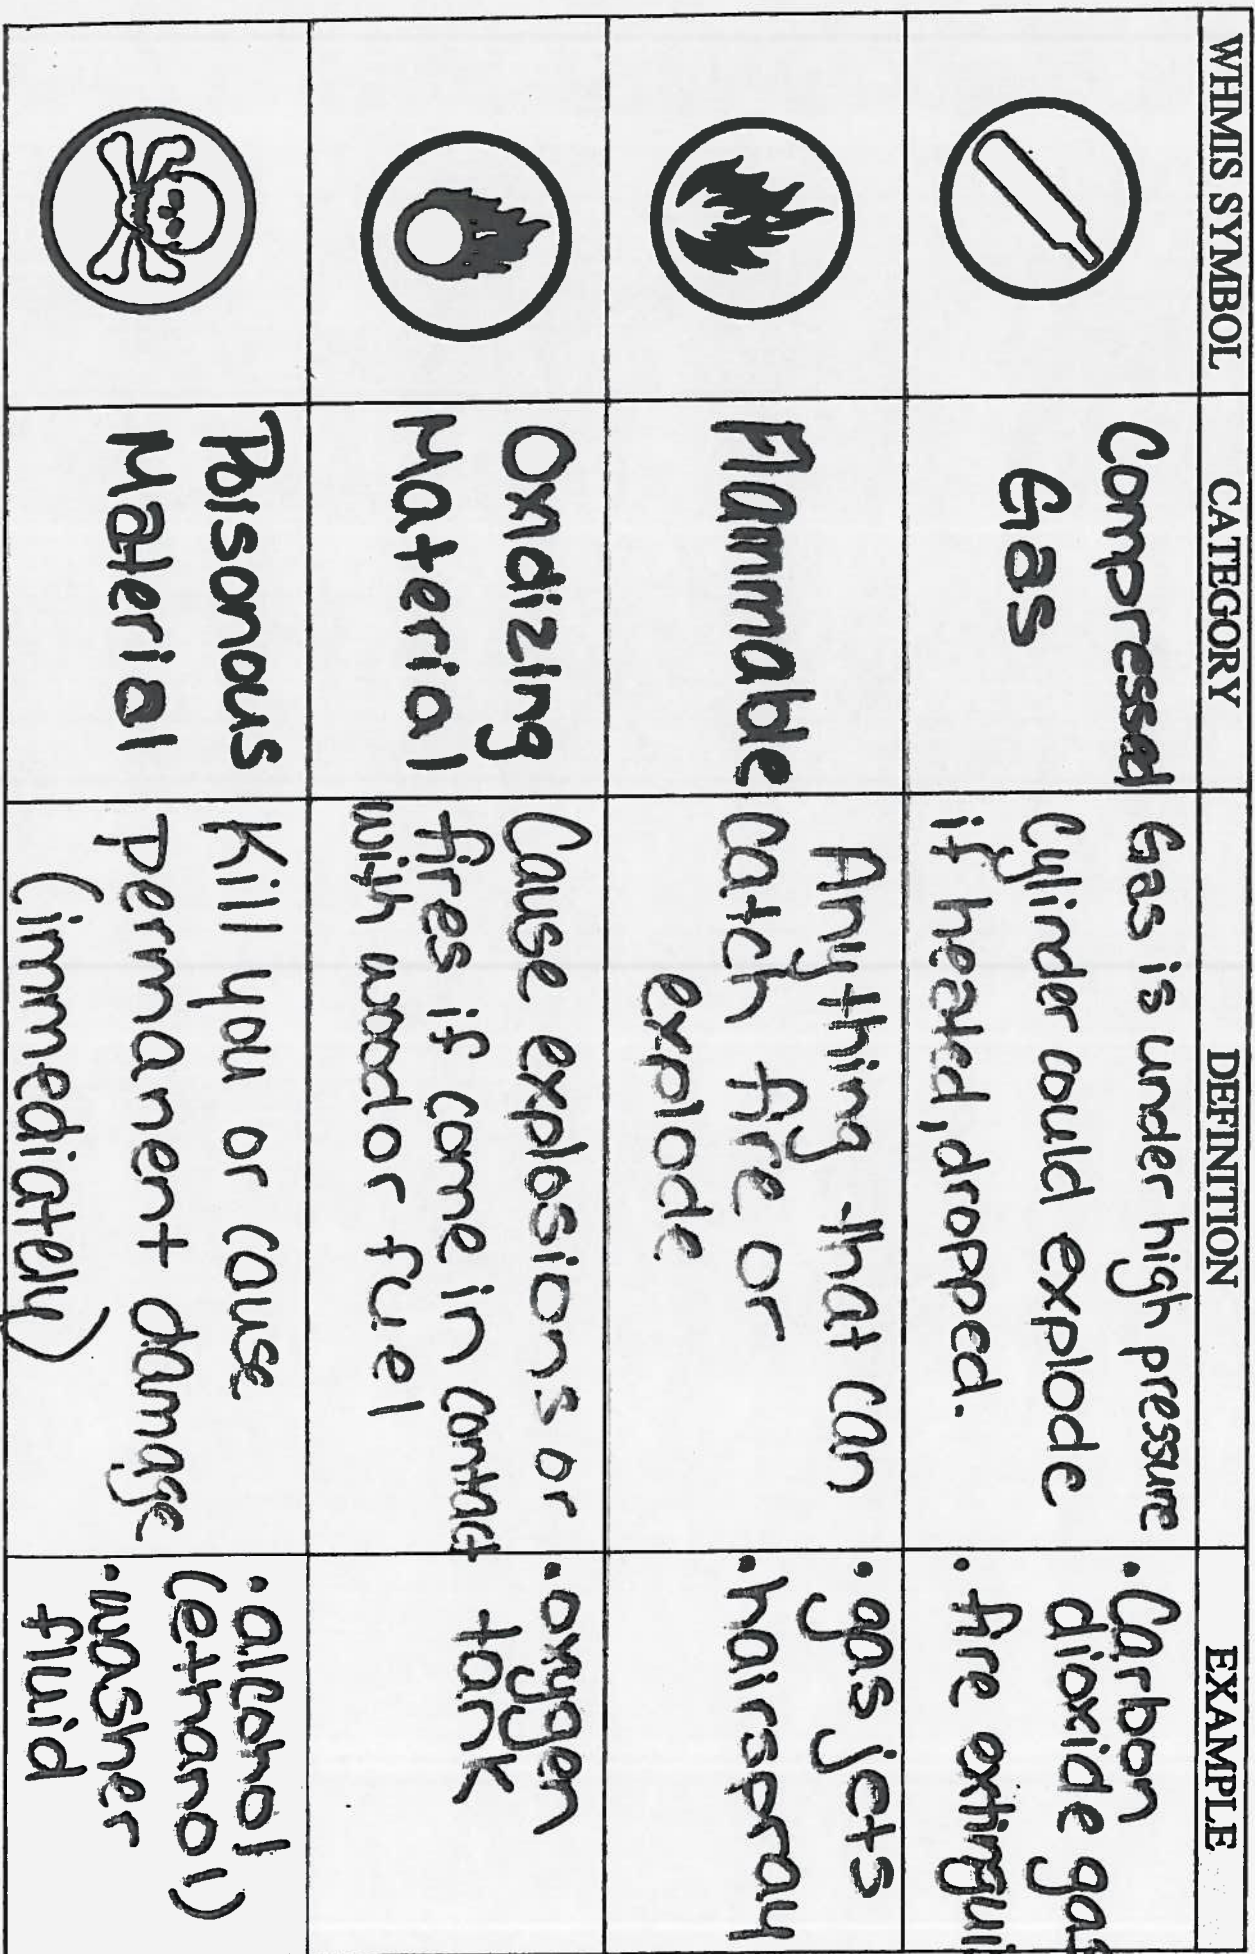 WHMIS SYMBOL CATEGORY DEFINITION EXAMPLE
Compressed
Gas
Gas is under high pressure
Cylinder could explode
if heated, dropped.
• Carbon
dioxide gas
• fire extingui
Flammable
Anything that can
catch fire or
explode
• gas jets
• hairspray
Oxidizing
Material
Cause explosions or
fires if come in contact
with wood or fuel
• oxygen
tank
Poisonous
Material
Kill you or cause
permanent damage
(immediately)
• alcohol
(ethanol)
• washer
fluid